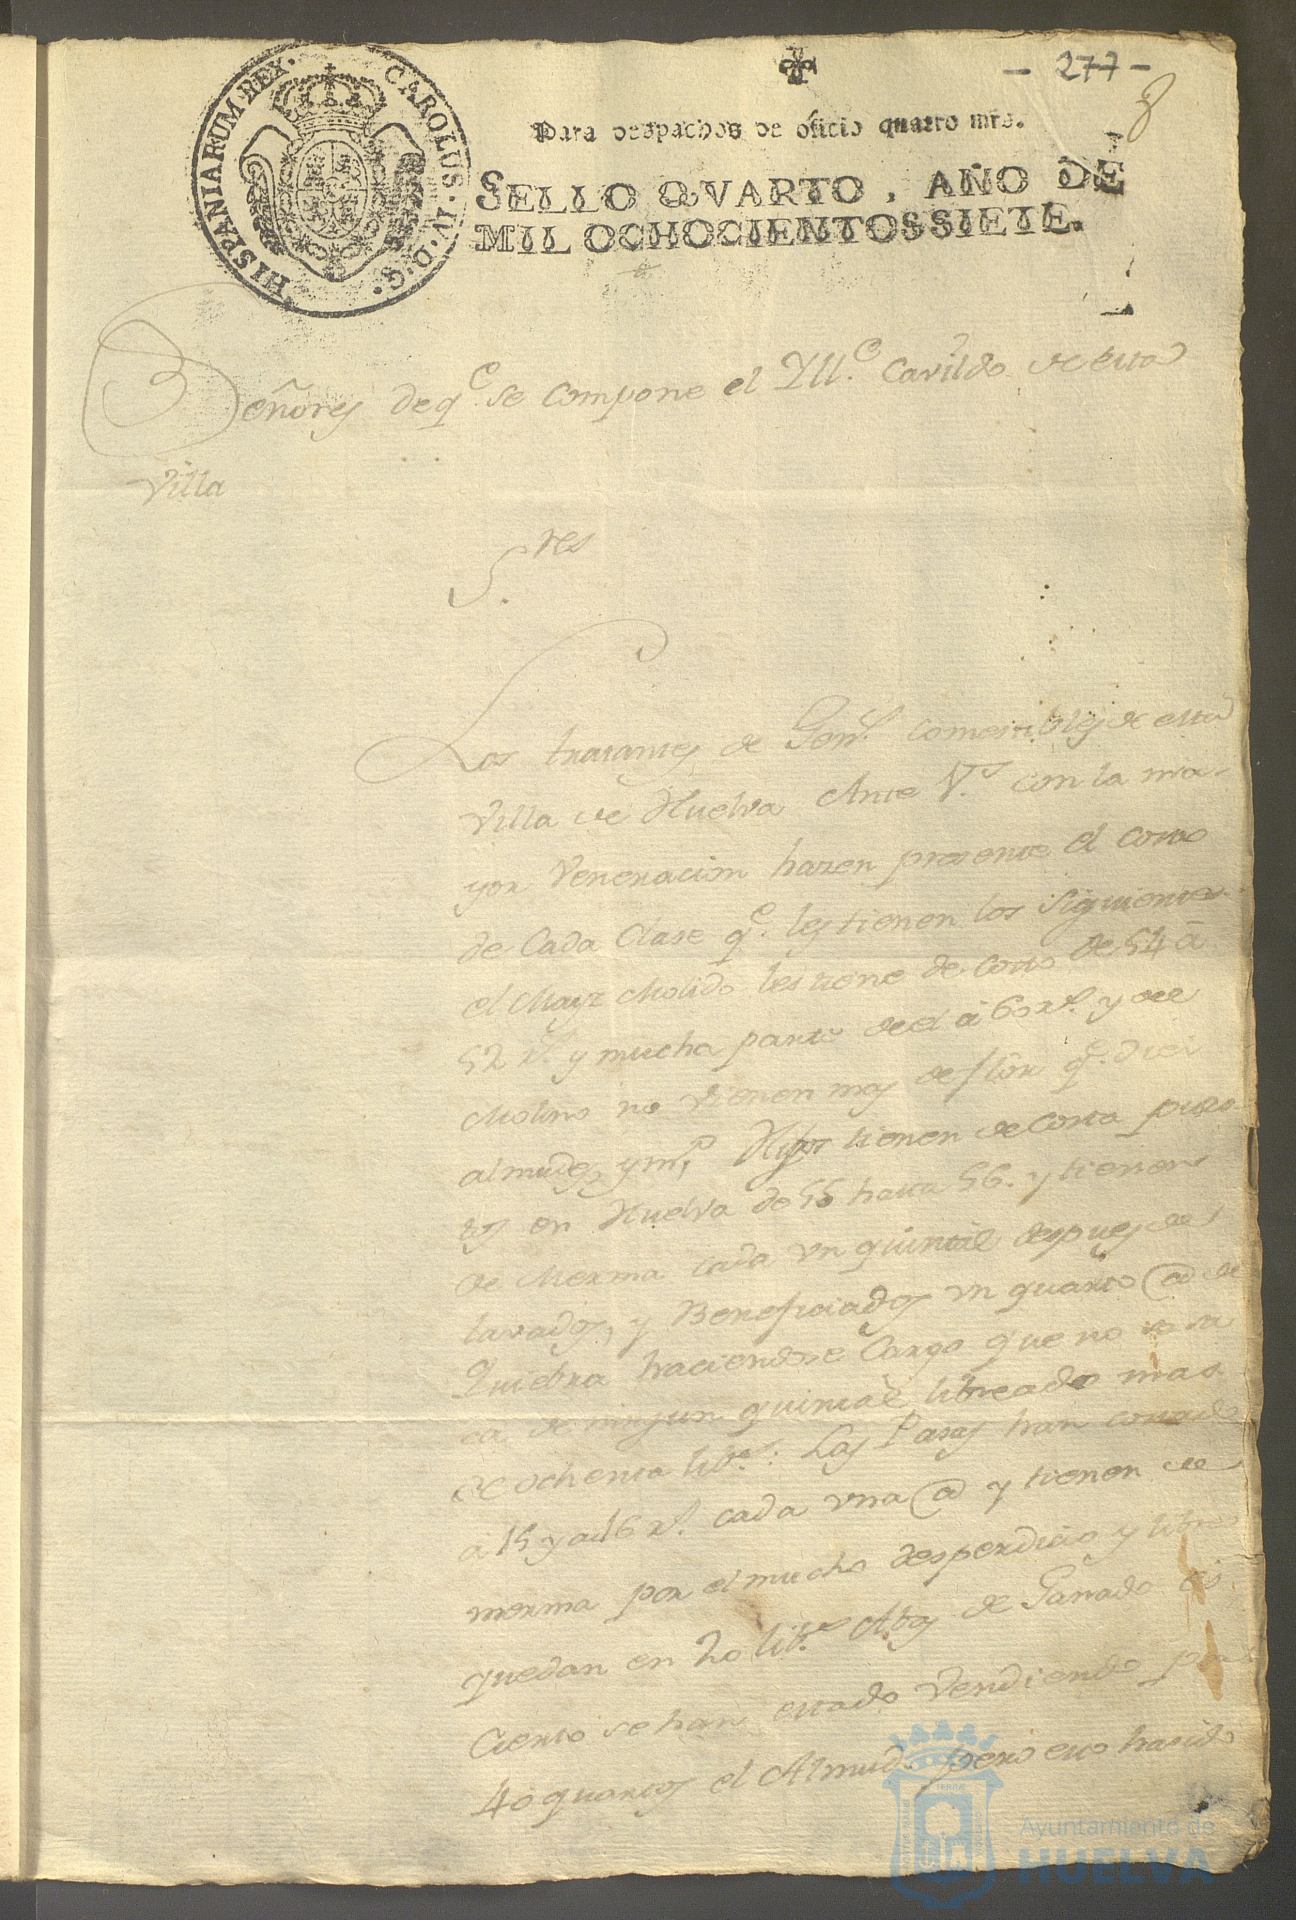 - 277 -
8
Para despachos de oficio quatro mrs.
SELLO QVARTO, AÑO DE
MIL OCHOCIENTOS SIETE.
CAROLUS·IV·D·G·HISPANIARUM·REX·
Señores de q.e se compone el Yll.e Cavildo de esta
Villa
S.res
Los tratantes de Gen.s comestibles de esta
Villa de Huelva Ante V.s con la ma-
yor Veneracion hazen presente el costo
de Cada Clase q.e les tienen los siguientes
el Mayz Molido les tiene de costo de 54 a
52 r.s y mucha parte de el a 60 r.s y de el
Molino no tienen mas de flor q.e diei
almudes y m.o Higos tienen de costa puro
tos en Huelva de 55 hasta 56. y tienen
de Merma cada vn quintal despues de
lavados, y Beneficiados vn quarto @ de
Quiebra haciendose Cargo que no se sa
ca de ningun quintal libreado mas
de ochenta lib.s: Las Pasas han costado
a 15 y a 16 r.s cada vna @ y tienen de
merma por el mucho desperdicio y libreo
quedan en 20 lib.s Abas de Ganado es
Cierto se han estado Vendiendo por
40 quartos el Almud. pero eso ha sido
Ayuntamiento de
HUELVA